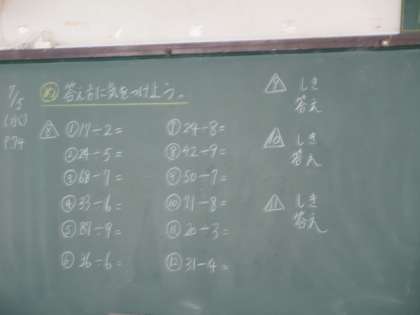 7/5
(水)
P74
め 答え方に気をつけよう。
8 ①17÷2=
②24÷5=
③68÷7=
④33÷6=
⑤87÷9=
⑥26÷6=
⑦24÷8=
⑧42÷9=
⑨50÷7=
⑩71÷8=
⑪20÷3=
⑫31÷4=
9 しき
答え
10 しき
答え
11 しき
答え